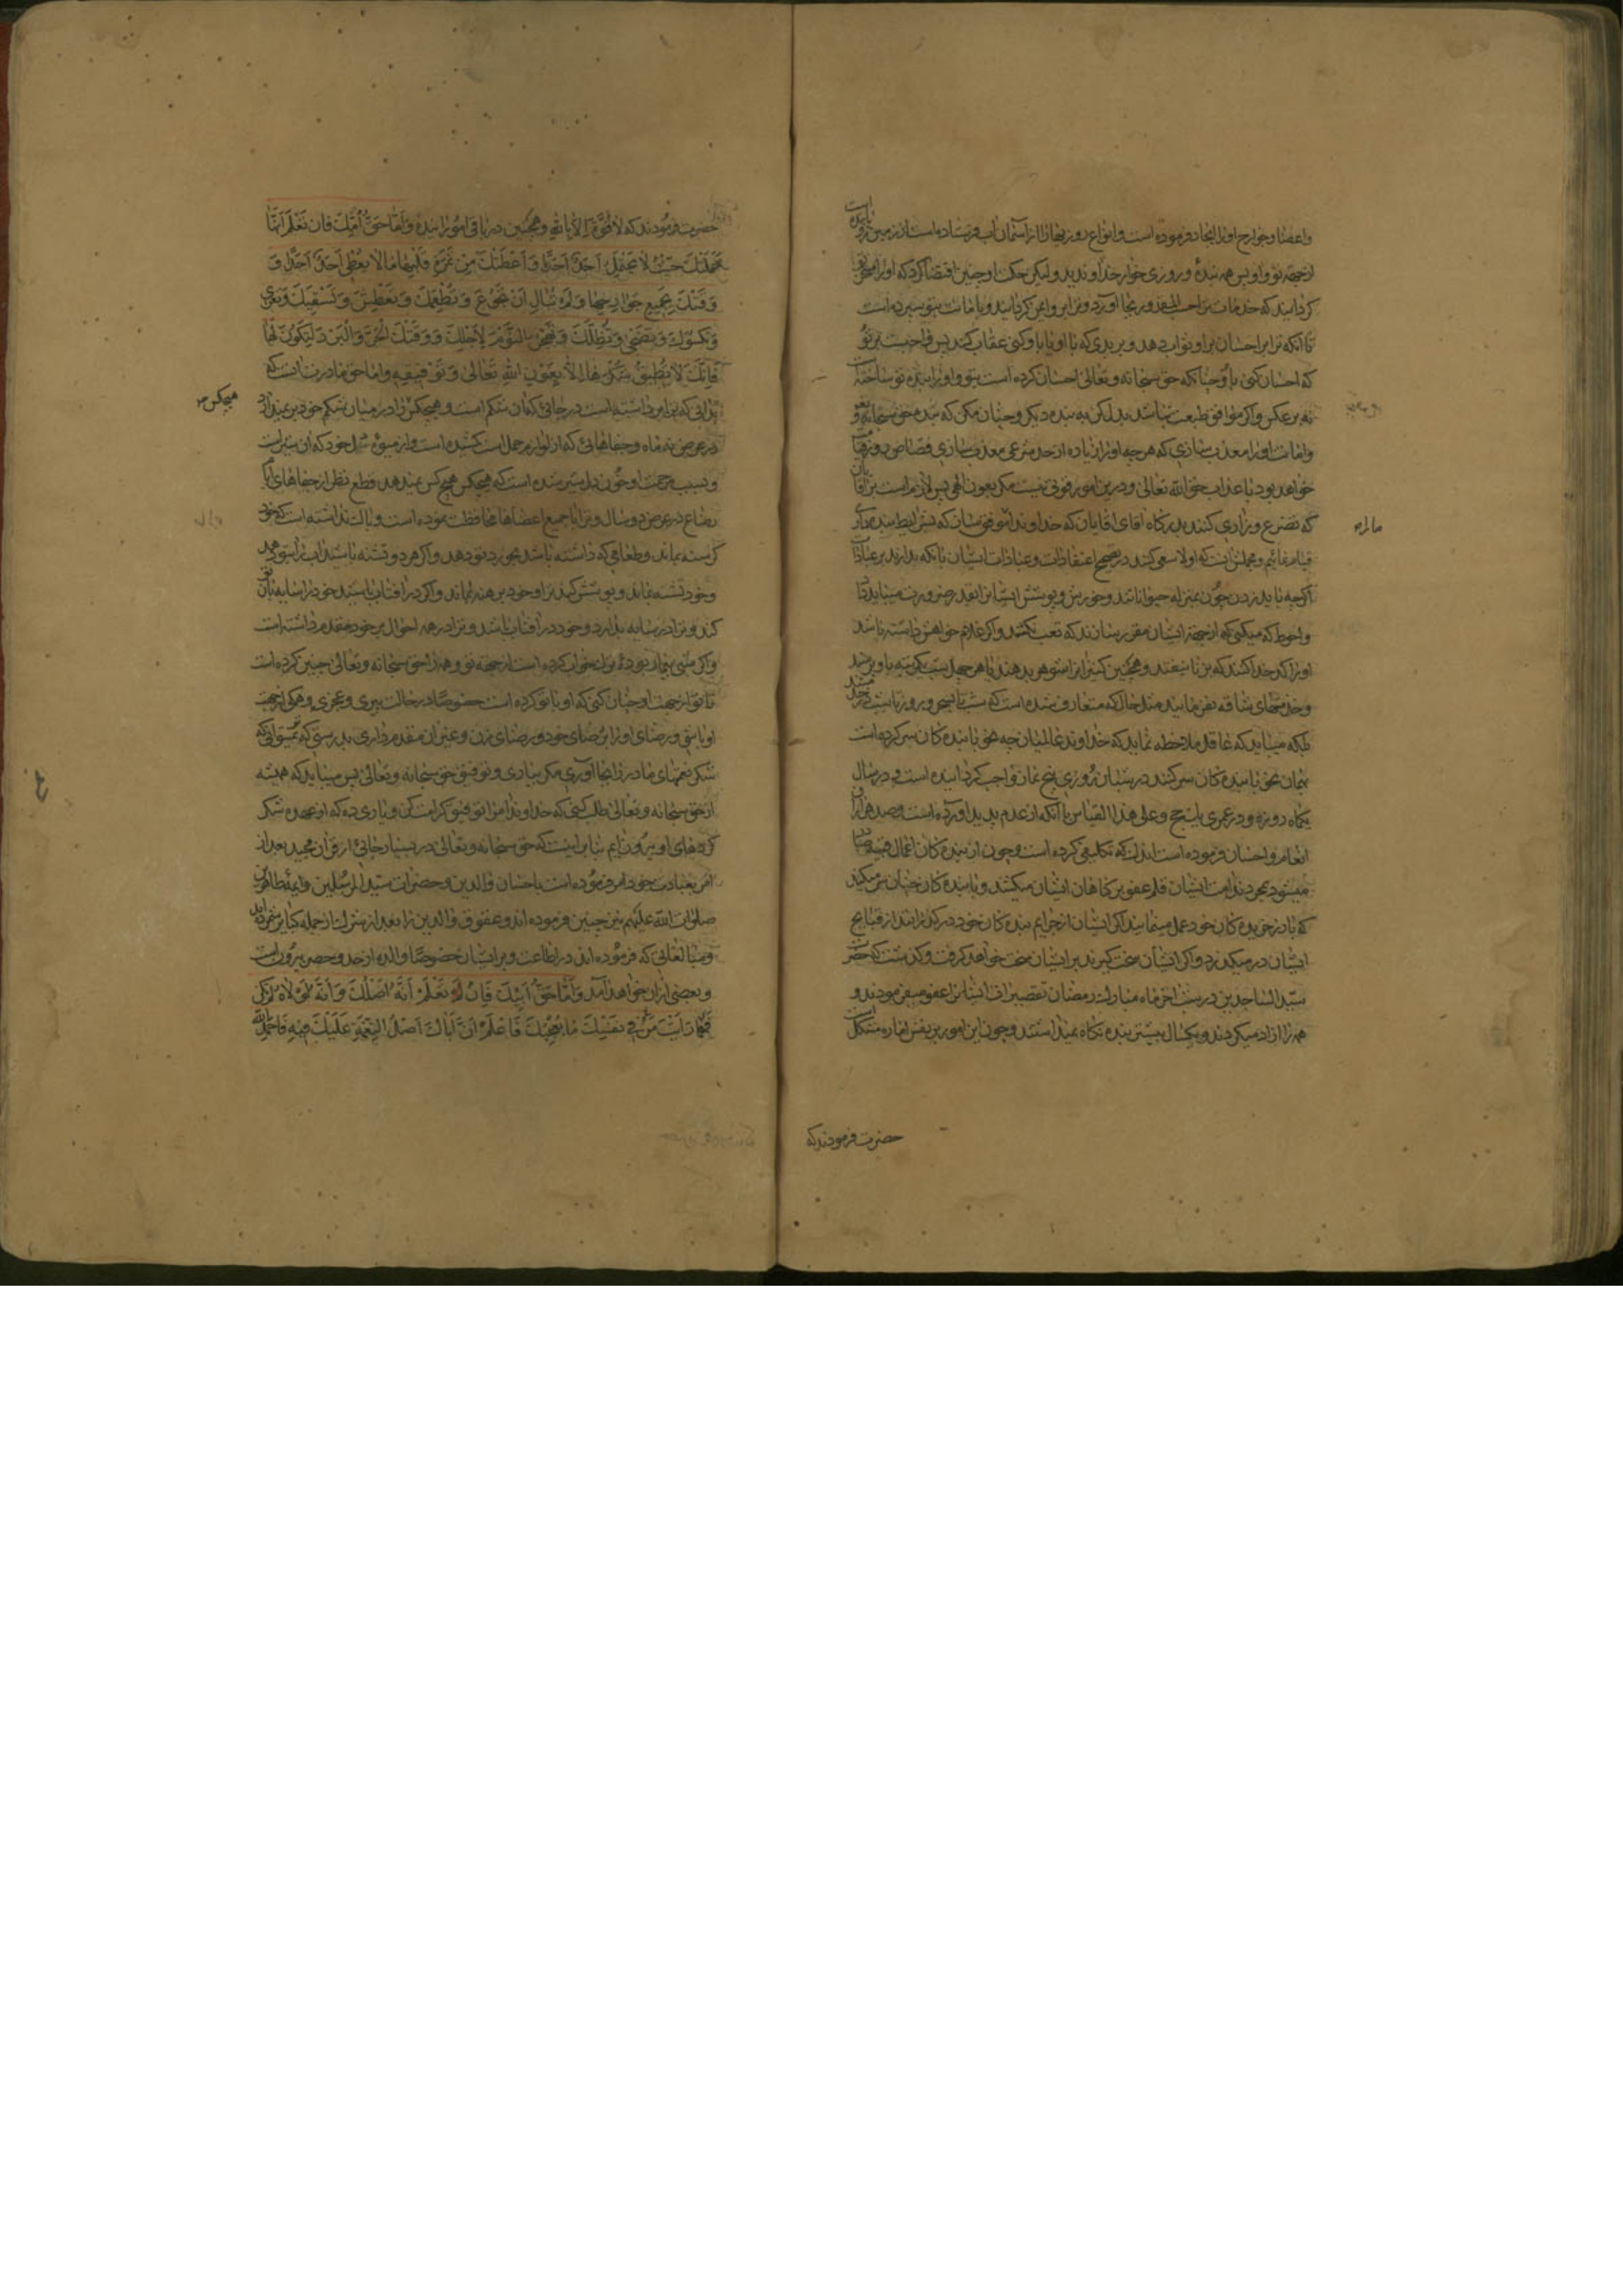 واعضا و جوارح او را ایجاد فرموده است و انواع روزیها را از آسمان آب فرستاده است از زمین رویانیده است
از جهة تو و او پس همه بندۀ و روزی خوار خداوندید و لیکن حکت او چنین اقتضا کرد که او را مسخر تو
کردانید که خدمات ترا حسب المقدور بجا آورد و ترا برو امین کردانید و بامانت بتو سپرده است
تا آنکه ترا بر احسان برا و ثواب دهد و بر بدی که با او یا باو کنی عقاب کند پس واجبست بر تو
که احسان کنی باو چنانکه حق سبحانه و تعالی احسان کرده است بتو و او را بنده تو ساخته
نه بر عکس و اگر موافق طبعت نباشد بدل کن به بنده دیگر و چنان مکن که بنده حق سبحانه و تعالی
وامانت او را معذب سازی که هر چه او را زیاده از حد شرعی معذب سازی قصاص روز قیامت
خواهد بود با عذاب حق الله تعالی و درین امور قوتی نیست مکر بعون الهی پس لازم است بر آقایان
که تضرع و زاری کنند بدرکاه اقای اقایان که خداوندا موفق سان که بشرایط بنده داری
قیام نمائیم و مجملش آنست که اولا سعی کنند در تصحیح اعتقادات و عبادات ایشان بآنکه بدارند بر عبادات
اگر چه باید زدن چون بمنزله حیوانانند و خورش و پوشش ایشانرا بقدر ضرورت میباید داد
واحوط که میکنی که از جهة ایشان مقرر سازند که تعب نکشند و اگر غلام خواهش داشته باشد
او را کدخدا کنند که بزنا نیفتد و همچنین کنیزانرا شوهر بدهند یا هر چهل شب یک مرتبه باو برسند
و خدمتهای شاقه نفرمایند مثل حال که متعارف شده است که شب تا صبح و روز تا شب در خدمتند
بلکه میباید که عاقل ملاحظه نماید که خداوند عالمیان چه نحو با بنده کان سر کرده است
بهمان نحو با بنده کان سر کنند در شبانه روزی پنج نماز واجب کردانیده است و در سال
یکماه روزه و در عمری یک حج و علی هذا القیاس با آنکه از عدم پدید آورده است و صد هزاران
انعام و احسان فرموده است اندک تکلیفی کرده است و چون از بنده کان اعمال قبیحه صادر
میشود بمجرد ندامت ایشان قلم عفو بر کناهان ایشان میکشد و با بنده کان چنان سر میکند
که با زر خریده کان خود عمل مینمایند اگر ایشان از جرایم بنده کان خود در گذرانند از قبایح
ایشان درمیکذرد و اگر ایشان سخت کیرند بر ایشان سخت خواهد کرفت و کذشت که حضرت
سید الساجدین در شب اخر ماه مبارک رمضان تقصیرات ایشانرا عفو میفرمودند و
همه را ازاد میکردند و یکسال بیشتر بنده نکاه نمیداشتند و چون این امور بر نفس اماره مشکل است
مالراه
حضرت فرمودند که
حضرت فرمودند که لا قُوَّةَ اِلاّ بِاللّهِ و همچنین در باقی امور آینده وَاَمّا حَقُّ اُمِّكَ فَاَن تَعْلَمَ اَنَّها
حَمَلَتْكَ حَيْثُ لا يَحْتَمِلُ اَحَدٌ اَحَدًا وَاَعْطَتْكَ مِنْ ثَمَرَةِ قَلْبِها مَا لا يُعْطِي اَحَدٌ اَحَدًا وَ
وَقَتْكَ بِجَميعِ جَوارِحِها وَلَمْ تُبالِ اَنْ تَجُوعَ وَتُطْعِمَكَ وَتَعْطَشَ وَتَسْقِيَكَ وَتَعْرَى
وَتَكْسُوَكَ وَتَضْحَى وَتُظِلَّكَ وَتَهْجُرَ النَّوْمَ لِاَجْلِكَ وَوَقَتْكَ الْحَرَّ وَالْبَرْدَ لِتَكُونَ لَهَا
فَاِنَّكَ لا تُطيقُ شُكْرَها اِلاّ بِعَوْنِ اللهِ تَعَالى وَتَوْفيقِهِ و اما حق مادرت آنست که
بدانی که ترا برداشته است در جائی که آن شکم است و هیچکس را در میان شکم خود بر نمیدارد
در عرض نه ماه و جفاهائی که از لوازم حمل است کشیده است و از میوۀ دل خود که آن شیر است
و بسبب مرحمت او خون بدل شیر شده است که هیچکس هیچ کس نمیدهد قطع نظر از جفاهای ایام
رضاع در عرض دو سال و ترا با جمیع اعضاها محافظت نموده است و باک نداشته است که خود
کرسنه بماند و طعامی که داشته باشد بخورد تو دهد و اگر هر دو تشنه باشند اب را بتو دهد
وخود تشنه بماند و پوشش کند ترا و خود برهنه بماند و اگر در افتاب باشید خود را سایه بان تو
کند و ترا در سایه بدارد و خود در آفتاب باشد و ترا در همه احوال بر خود مقدم داشته است
واگر شبی بیمار بودۀ ترک خواب کرده است از جهة تو و همه را حق سبحانه و تعالی چنین کرده است
تا تو از جهت او چنان کنی که او با تو کرده است خصوصا در حالت پیری و عجزی و همکی از جهت
او باشی و رضای او را بر رضای خود و رضای زن و غیر ان مقدم داری بدرستی که نمیتوانی که
شکر نعمتهای مادر را بجا آوری مکر بیاری و توفیق حق سبحانه و تعالی پس میباید که همیشه
از حق سبحانه و تعالی طلب کنی که خداوندا مرا توفیق کرامت کن و یاری ده که از عهده شکر
کردهای او بیرون آیم بنابر اینست که حق سبحانه و تعالی در بسیار جائی از قرآن مجید بعد از
امر بعبادت خود امر فرموده است باحسان والدین و حضرات سید المرسلین و ائمه طاهرین
صلوات الله علیهم نیز چنین فرموده اند و عقوق والدین را بعد از شرک از جمله کبایر شمرده اند
و مبالغاتی که فرموده اند در اطاعت و بر ایشان خصوصا والده از حد و حصر بیرون است
و بعضی ازان خواهد آمد وَاَمّا حَقُّ اَبيكَ فَاَنْ تَعْلَمَ اَنَّهُ اَصْلُكَ وَاَنَّهُ لَوْلاهُ لَمْ تَكُنْ
فَمَهْما رَاَيْتَ مِنْ نَفْسِكَ ما يُعْجِبُكَ فَاعْلَمْ اَنَّ اَباكَ اَصْلُ النِّعْمَةِ عَلَيْكَ فيهِ فَاحْمَدِ اللّهَ
هیچکس